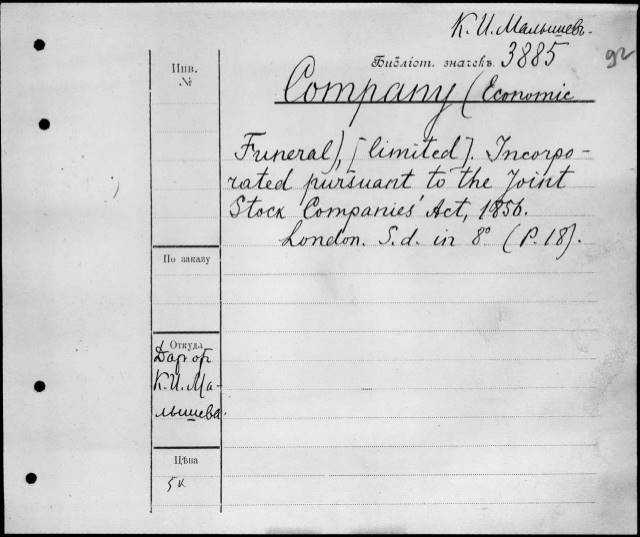 К. И. Малышевъ.
92
Библіот. значекъ. 3885
Инв.
№
Company (Economic
Funeral), [limited]. Incorpo-
rated pursuant to the Joint
Stock Companies' Act, 1856.
London. S.d. in 8° (P. 18).
По заказу
Откуда
Дар от
К. И. Ма-
лышева.
Цѣна
5к